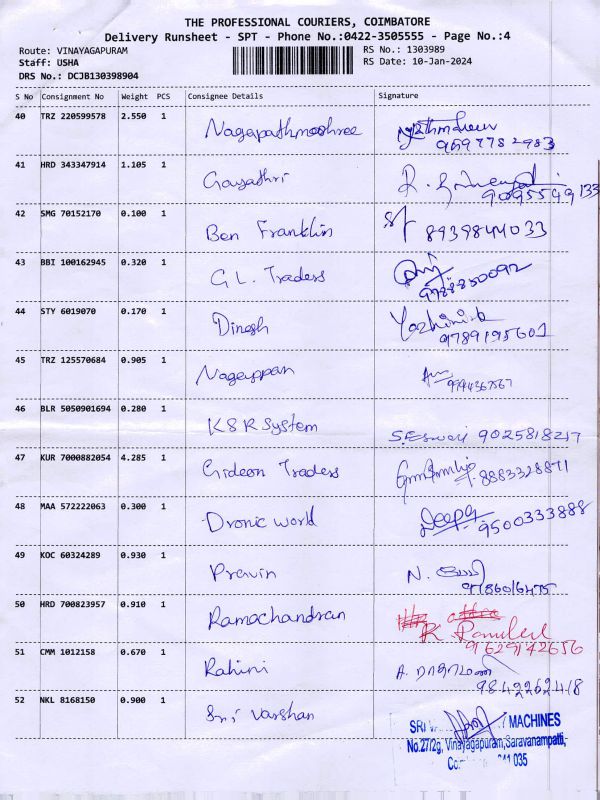 THE PROFESSIONAL COURIERS, COIMBATORE
Delivery Runsheet - SPT - Phone No.:0422-3505555 - Page No.:4
Route: VINAYAGAPURAM RS No.: 1303989
Staff: USHA RS Date: 10-Jan-2024
DRS No.: DCJB130398904
S No Consignment No Weight PCS Consignee Details Signature
40 TRZ 220599578 2.550 1 Nagapathmashree
9697782983
41 HRD 343347914 1.105 1 Gayathri R.
9095549133
42 SMG 70152170 0.100 1 Ben Franklin
43 BBI 100162945 0.320 1 G L. Traders
9788850092
44 STY 6019070 0.170 1 Dinesh Yazhinisk
9789195601
45 TRZ 125570684 0.905 1 Nagappan
46 BLR 5050901694 0.280 1 KSR System S.Eswari 9025818217
47 KUR 7000882054 4.285 1 Gideon Traders 8883328871
48 MAA 572222063 0.300 1 Dronic world Deepa
9500333888
49 KOC 60324289 0.930 1 Pravin N.
50 HRD 700823957 0.910 1 Ramachandran R.
9629142656
51 CMM 1012158 0.670 1 Rahini A.
9842262418
52 NKL 8168150 0.900 1 Sri Varshan
SRI MACHINES
No.27/2g, Vinayagapuram, Saravanampatti,
035